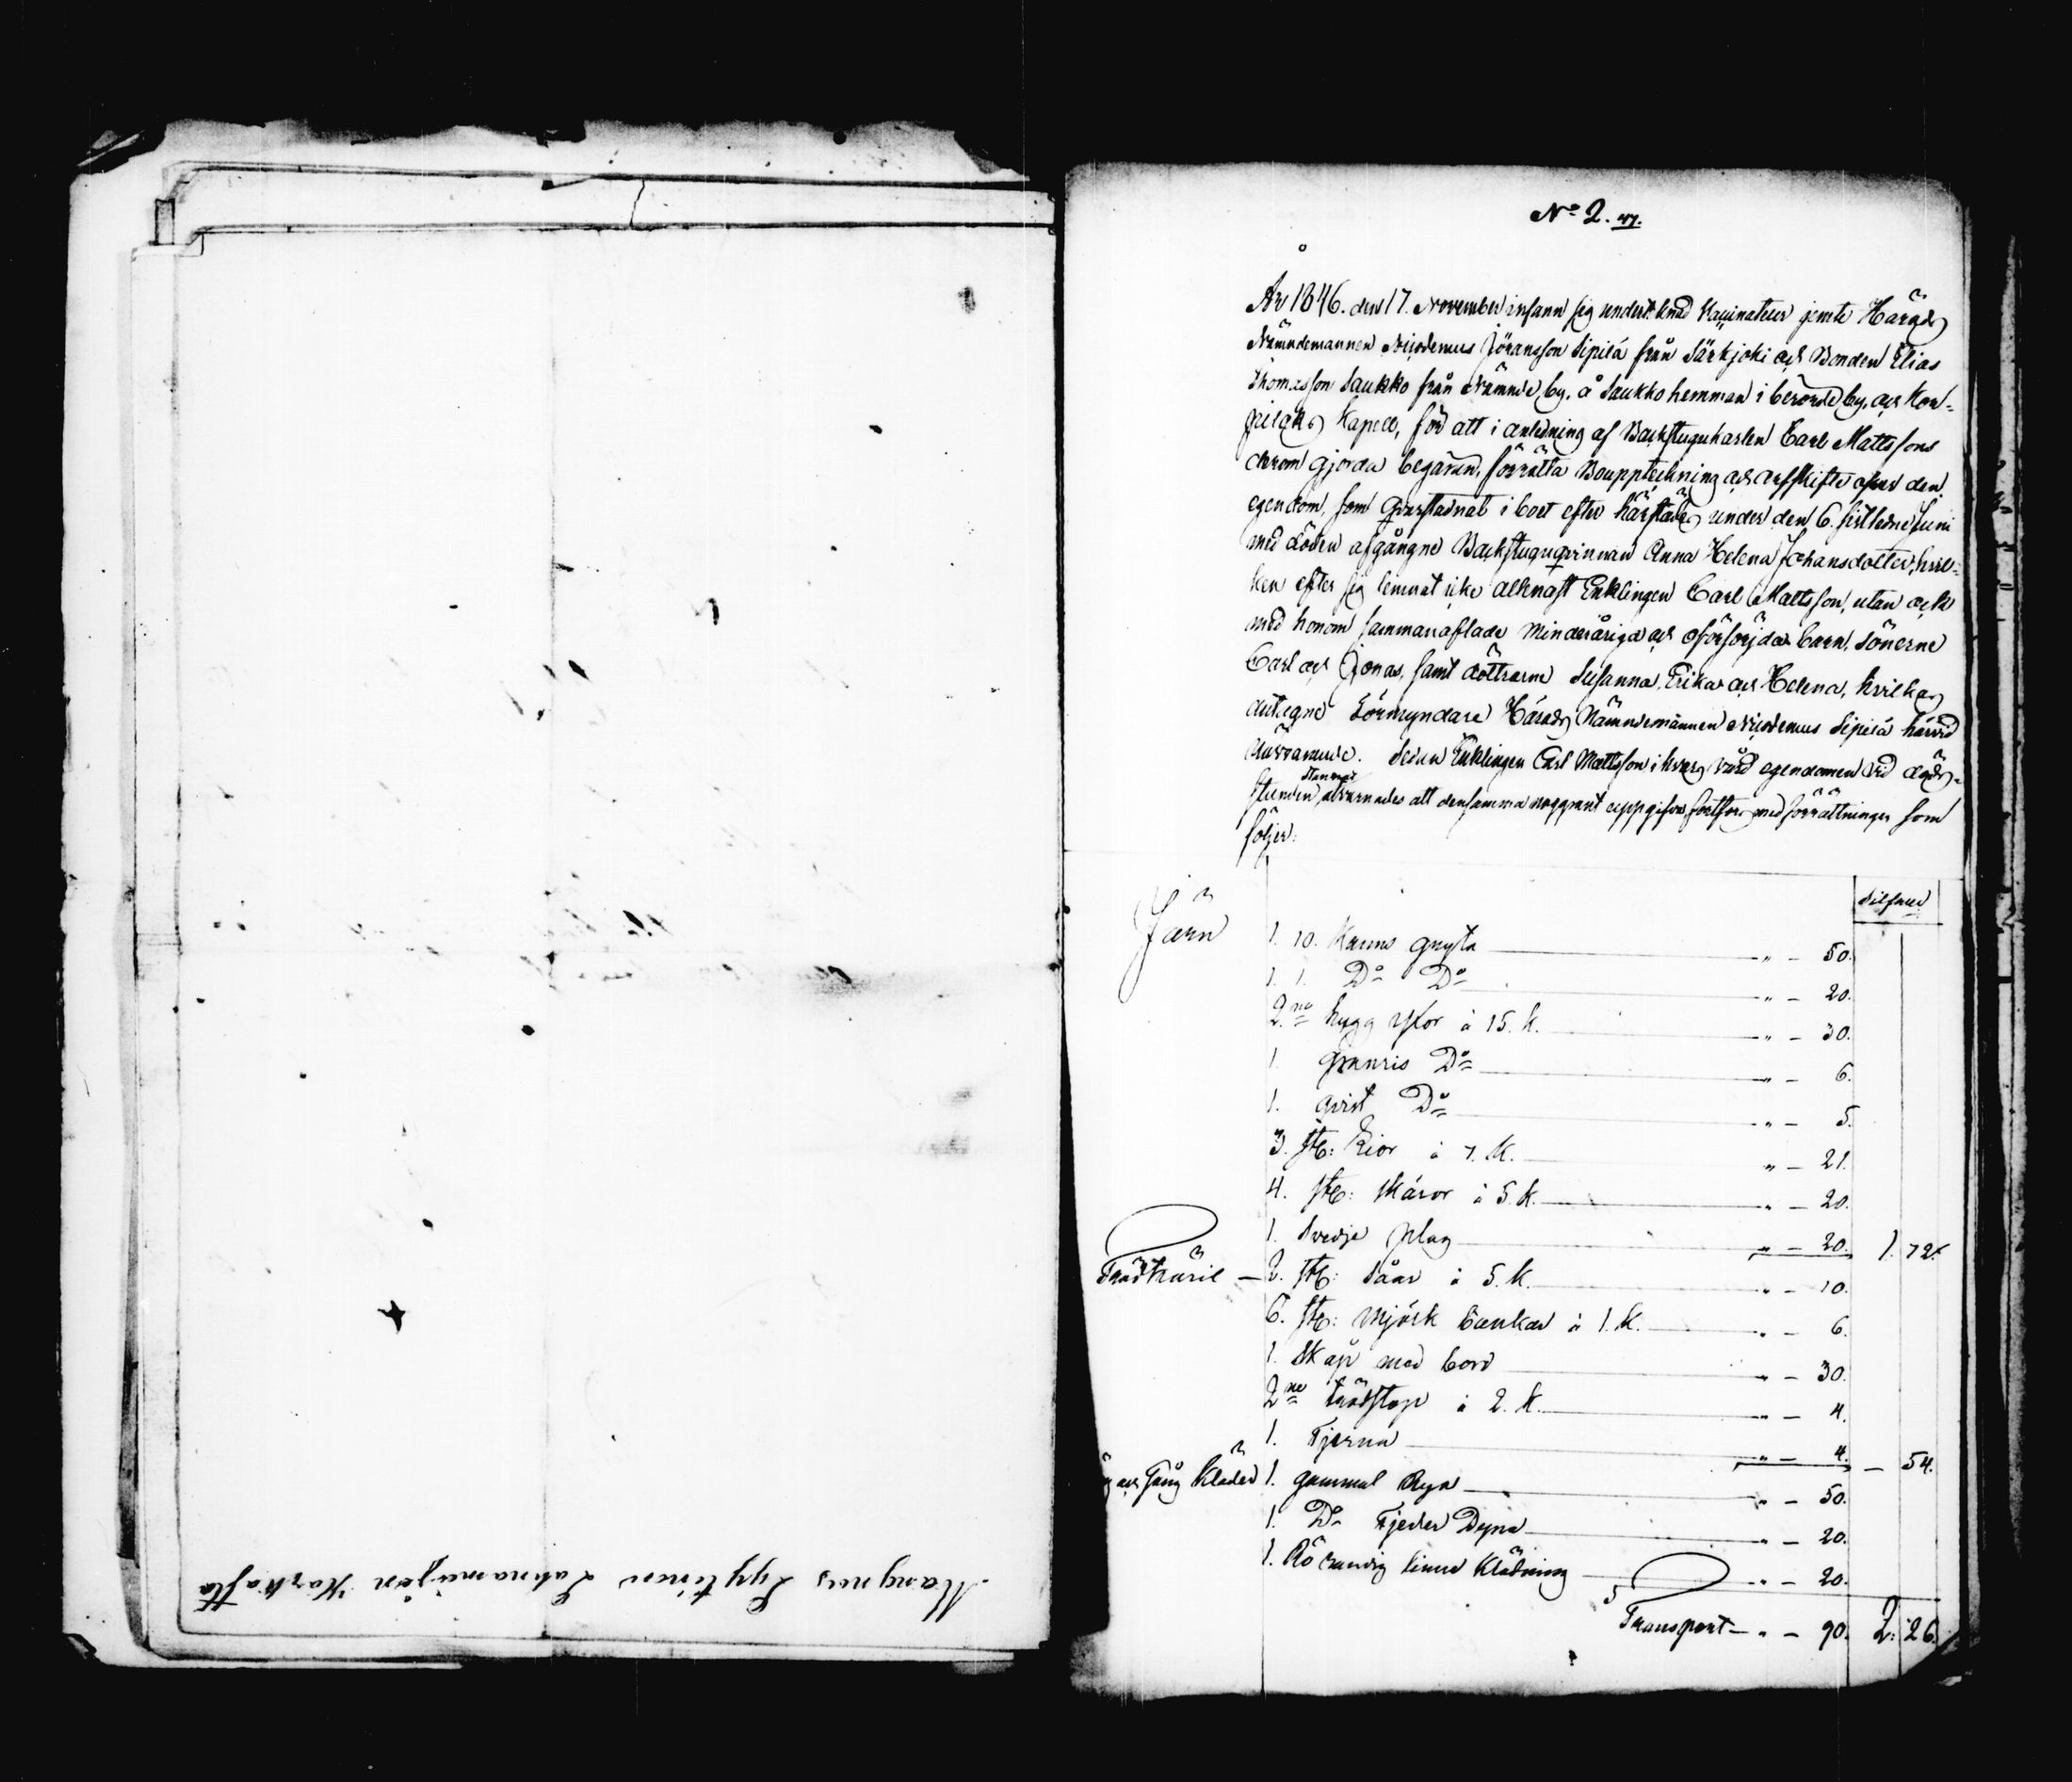 Magnus Lyytinen Lahnameijän Karhasta
No 2. 47.
År 1846. den 17. November infann sig underteknad Vaccinateur jemte Härads
Nämndemannen Nicodemus Jöransson Sipilä från Särkjoki och Bonden Elias
Thomasson Saukko från nämnde by, å Saukko hemman i berörde by, och Kor-
pilaks Kapell, för att i anledning af Backstugukarlen Carl Mattssons
derom gjorda begäran, förrätta Bouppteckning och arfskifte öfver den
egendom, som qvarstadnat i boet efter härstädes under den 6. sistledne Juni
med döden afgångne Backstuguqvinnan Anna Helena Johansdotter, hvil-
ken efter sig lemnat icke allenast Enklingen Carl Mattsson, utan ock
med honom sammanaflade minderåriga och oförsörjda barn, Sönerne
Carl och Jonas, samt döttrarne Susanna, Erika och Helena, hvilkas
antagne Förmyndare Härads Nämndemannen Nicodemus Sipilä härvid
närvarande. Sedan Enklingen Carl Mattsson i hvars vård egendomen vid döds-
stunden stannat, att densamma noggrant uppgifva, fortfors med förrättningen som
följer:
Silfver
Järn 1. 10. Kanns gryta " – 50.
1. 1. Do Do " – 20.
2ne hugg yxor à 15. k. " – 30.
1. granris Do " – 6.
1. qvist Do " – 5.
3. st: Lior à 7. k. " – 21.
4. st: skäror à 5. k. " – 20.
1. Svedje plog " – 20. 1. 72.
Trädkäril – 2. st: Såar à 5. k. " – 10.
6. st: Mjölk bunkar à 1. k. " – 6.
1. Skåp med bord " – 30.
2ne trädstop à 2. k. " – 4.
1. Tjerna " – 4. – 54.
och Säng Kläder 1. gammal Rya " – 50.
1. Do Fjeder Dyna " – 20.
1. Rö randig linne Klädning " – 20.
Transport – " – 90. 2. 26.